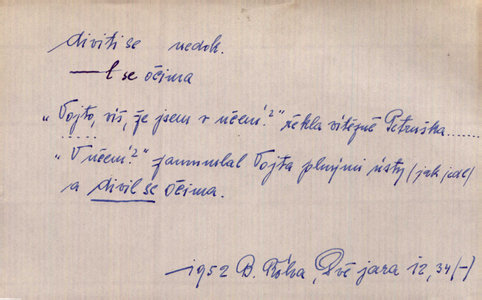 diviti se nedok.
—l se očima
„Vojto, víš, že jsem v učení?“ řekla vítězně Petruška.......
...... „V učení?“ zamumlal Vojta plnými ústy (jak jedl)
a divil se očima.
1952 B. Říha, Dvě jara 12, 34 (–)